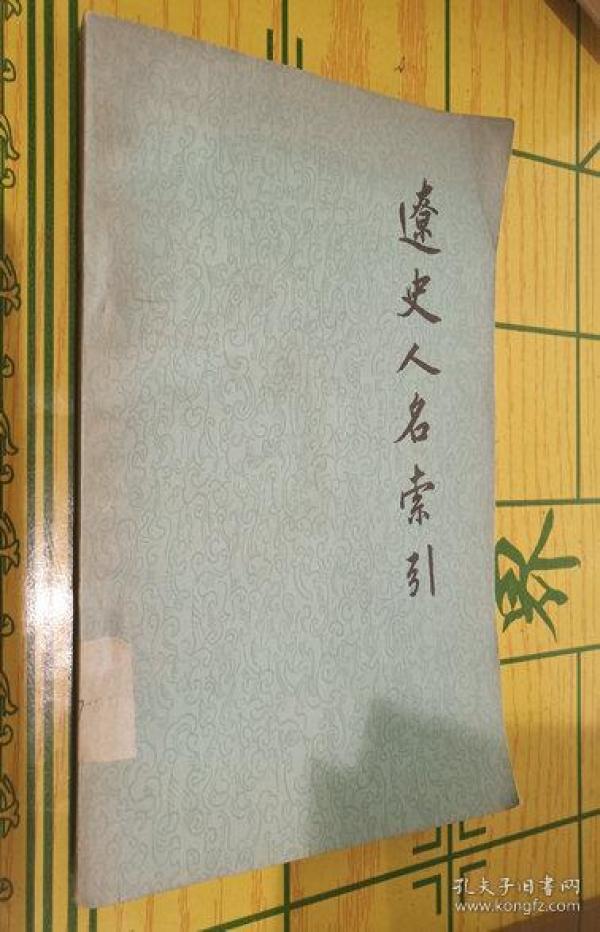 遼史人名索引
界
孔夫子旧書网
www.kongfz.com